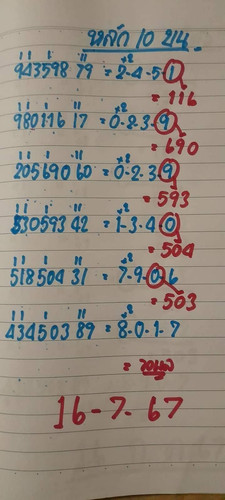 หลัก 10 บน
943598 79 = 2-4-5-1
= 116
980116 17 = 0-2-3-9
= 690
205690 60 = 0-2-3-9
= 593
530593 42 = 1-3-4-0
= 504
518504 31 = 7-9-0-6
= 503
434503 89 = 8-0-1-7
=
16-7-67